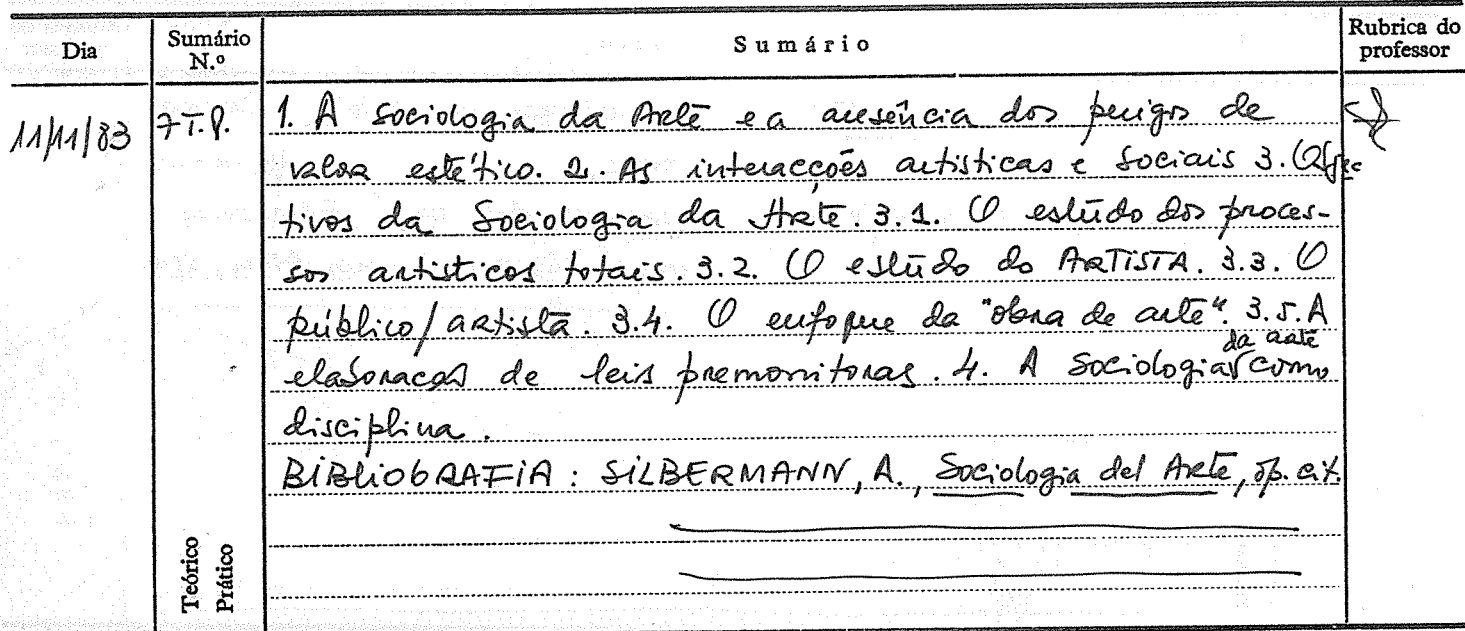 Dia
Sumário N.º
Sumário
Rubrica do professor
11/11/83
7 T.P.
1. A Sociologia da Arte e a ausência dos perigos de
valor estético. 2. As interacções artisticas e sociais 3. Objec
tivos da Sociologia da Arte. 3.1. O estudo dos proces-
sos artisticos totais. 3.2. O estudo do ARTISTA. 3.3. O
público/artista. 3.4. O enfoque da "obra de arte". 3.5. A
elaboração de leis premonitoras. 4. A Sociologia da arte como
disciplina.
BIBLIOGRAFIA: SILBERMANN, A., Sociologia del Arte, op. cit.
Teórico
Prático